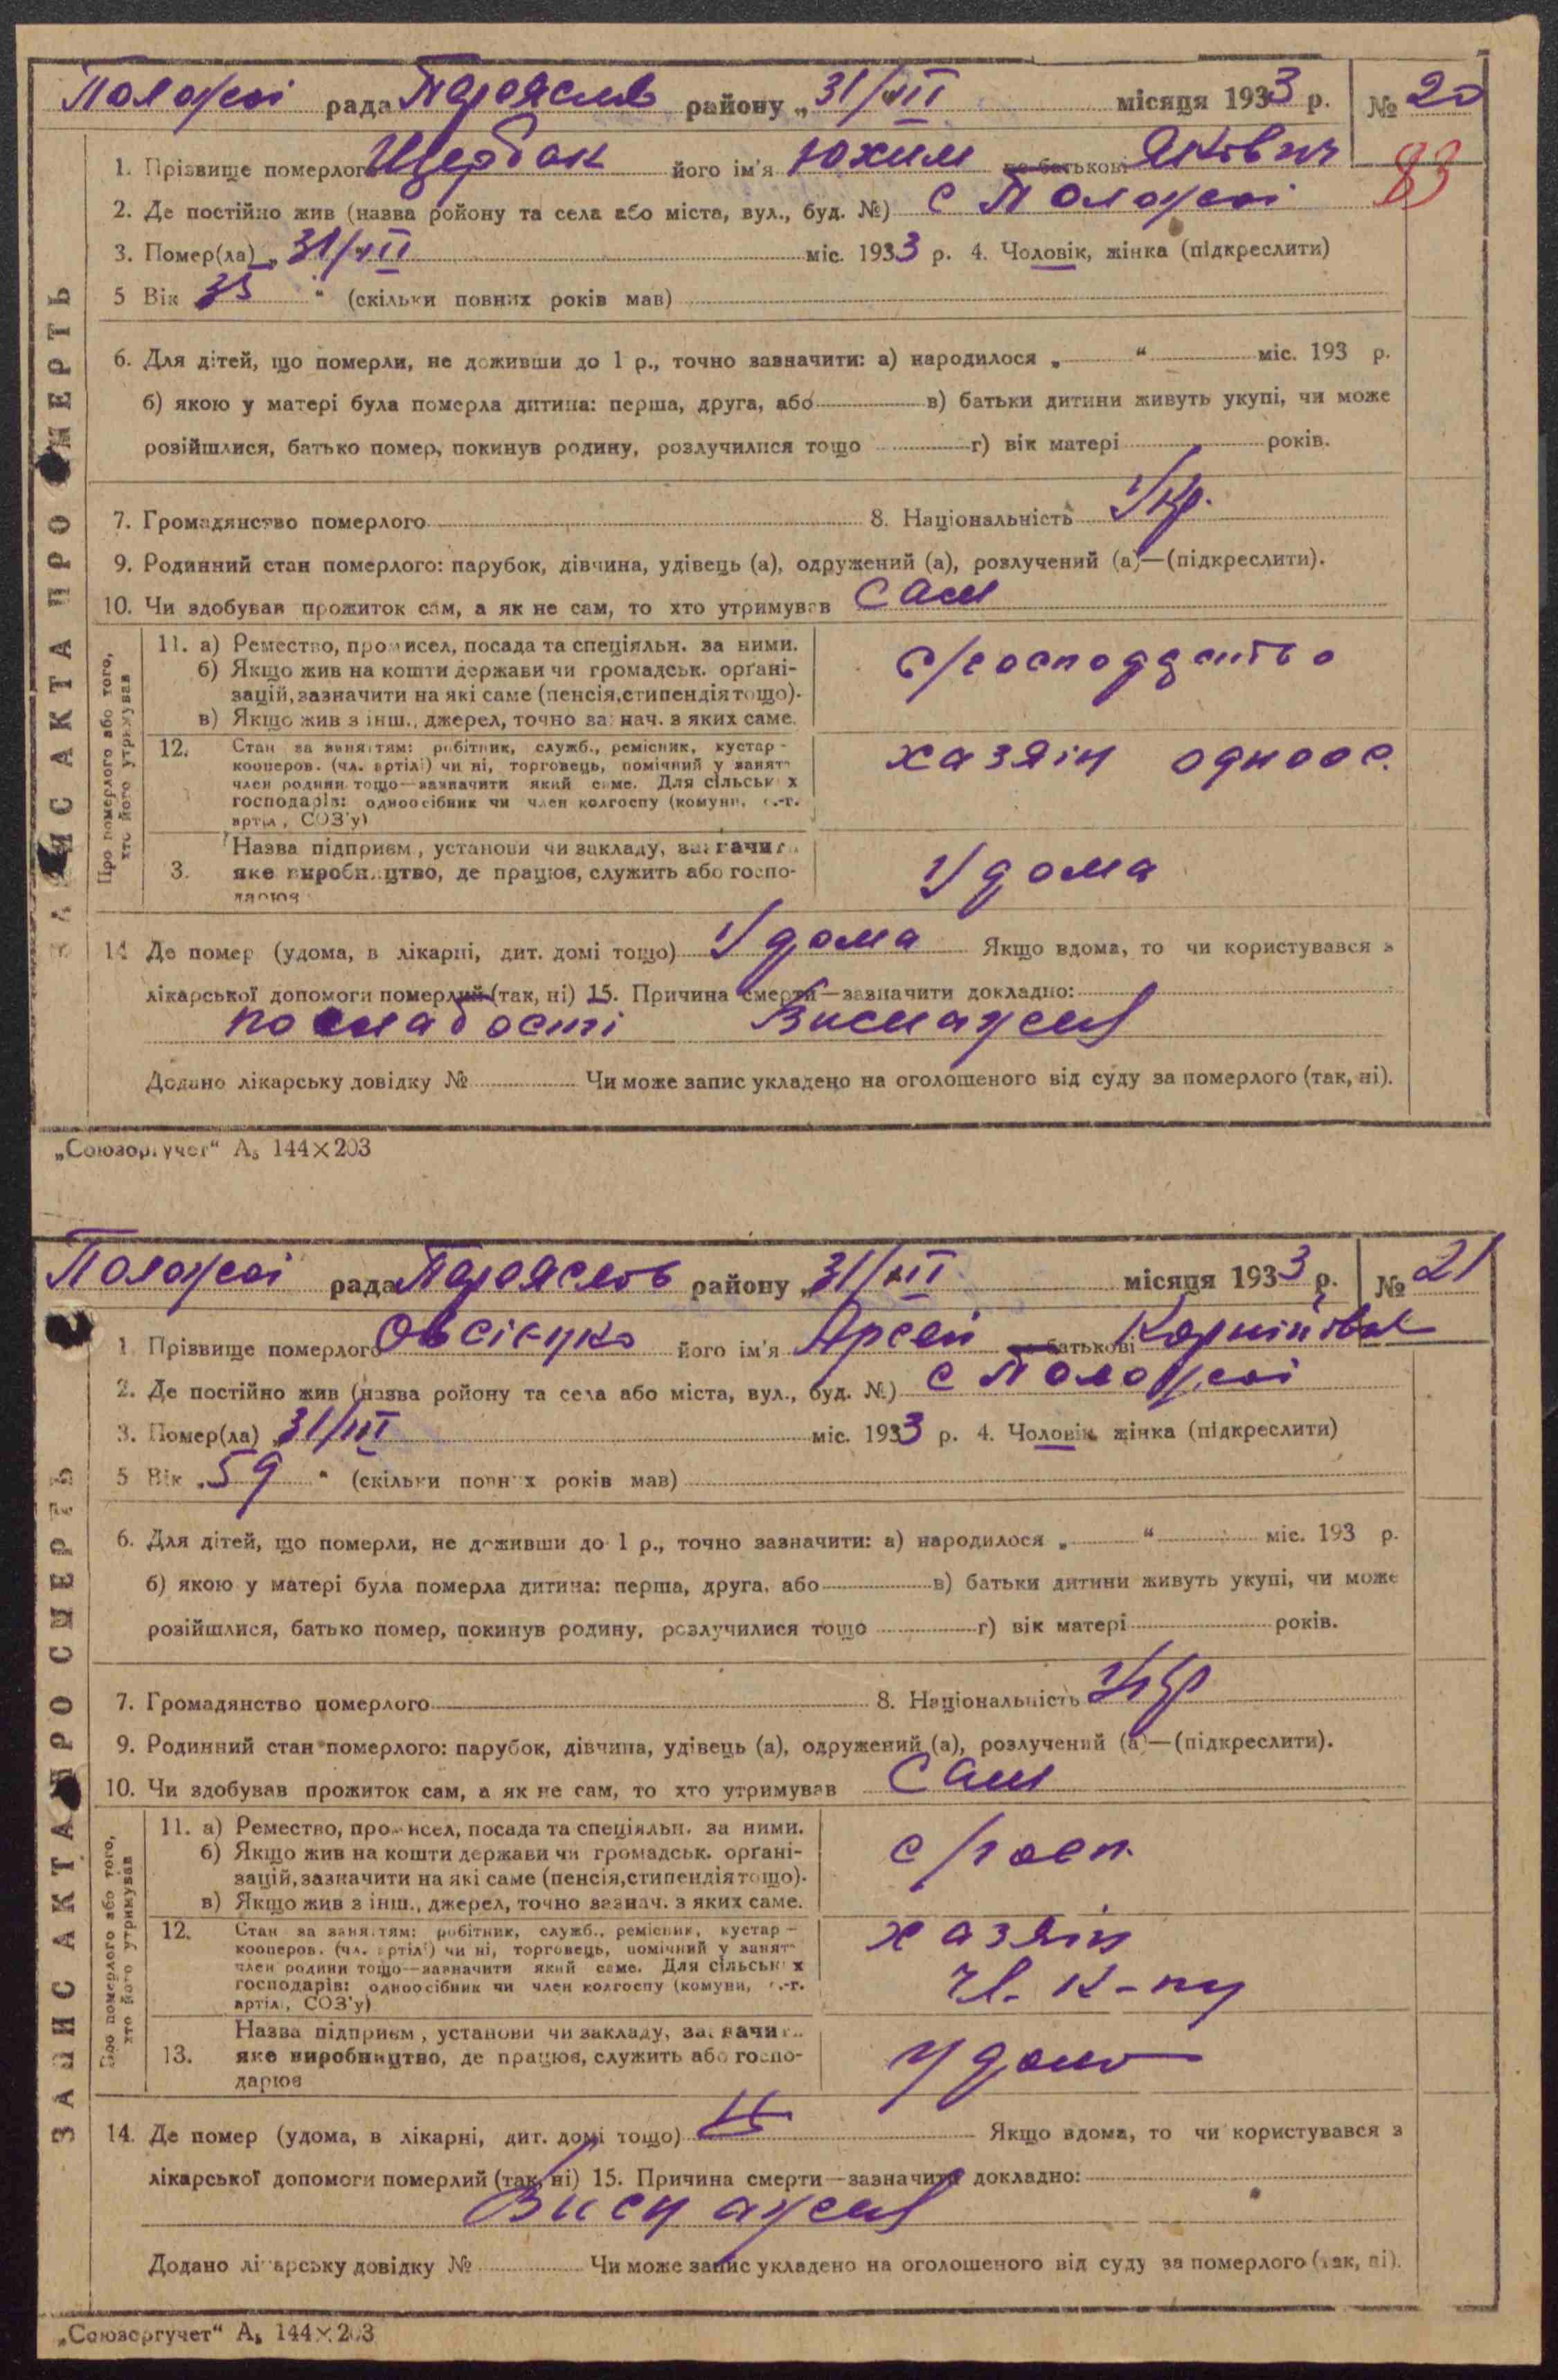 Положаі рада Пареяслів району „ 31/III місяця 1933 р. № 20
83
1. Прізвище померлого Щербак його ім'я Юхим по батькові Яківич
2. Де постійно жив (назва ройону та села або міста, вул., буд. №) с Положаі
3. Помер(ла) „ 31/III міс. 1933 р. 4. Чоловік, жінка (підкреслити)
5 Вік 35 “ (скільки повних років мав)
6. Для дітей, що померли, не доживши до 1 р., точно зазначити: а) народилося „ “ міс. 193 р.
б) якою у матері була померла дитина: перша, друга, або в) батьки дитини живуть укупі, чи може
розійшлися, батько помер, покинув родину, розлучилися тощо г) вік матері років.
7. Громадянство померлого 8. Національність Укр.
9. Родинний стан померлого: парубок, дівчина, удівець (а), одружений (а), розлучений (а)—(підкреслити).
10. Чи здобував прожиток сам, а як не сам, то хто утримував сам
ЗАПИС АКТА ПРО СМЕРТЬ
Про померлого або того, хто його утримував
11. а) Ремество, промисел, посада та спеціяльн. за ними.
б) Якщо жив на кошти держави чи громадськ. орґані-
зацій, зазначити на які саме (пенсія, стипендія тощо).
в) Якщо жив з інш., джерел, точно зазнач. з яких саме.
с/господдство
12. Стан за заняттям: робітник, служб., ремісник, кустар –
кооперов. (чл. артілі) чи ні, торговець, помічний у занятт
член родини тощо—зазначити який саме. Для сільських
господарів: одноосібник чи член колгоспу (комуни, с.-г.
артіл, СОЗ'у)
хазяін одноос.
Назва підприєм, установи чи закладу, зазначити
3. яке виробництво, де працює, служить або госпо-
дарює
Удома
14 Де помер (удома, в лікарні, дит. домі тощо) Удома Якщо вдома, то чи користувався з
лікарської допомоги померлий (так, ні) 15. Причина смерти—зазначити докладно:
по слабості Виснажен
Додано лікарську довідку № Чи може запис укладено на оголошеного від суду за померлого (так, ні).
„Союзоргучет“ А₅ 144×203
Положаі рада Пареяслов району „ 31/III місяця 1933 р. № 21
1 Прізвище померлого Овсієнко його ім'я Арсей по батькові Корнійов
2. Де постійно жив (назва ройону та села або міста, вул., буд. №) с Положаі
3. Помер(ла) „ 31/III міс. 1933 р. 4. Чоловік жінка (підкреслити)
5 Вік „ 59 “ (скільки повних років мав)
6. Для дітей, що померли, не доживши до 1 р., точно зазначити: а) народилося „ “ міс. 193 р.
б) якою у матері була померла дитина: перша, друга, або в) батьки дитини живуть укупі, чи може
розійшлися, батько помер, покинув родину, розлучилися тощо г) вік матері років.
7. Громадянство померлого 8. Національність Укр
9. Родинний стан померлого: парубок, дівчина, удівець (а), одружений (а), розлучений (а)—(підкреслити).
10. Чи здобував прожиток сам, а як не сам, то хто утримував сам
ЗАПИС АКТА ПРО СМЕРТЬ
Про померлого або того, хто його утримував
11. а) Ремество, промисел, посада та спеціяльн. за ними.
б) Якщо жив на кошти держави чи громадськ. орґані-
зацій, зазначити на які саме (пенсія, стипендія тощо).
в) Якщо жив з інш., джерел, точно зазнач. з яких саме.
с/госп.
12. Стан за заняттям: робітник, служб., ремісник, кустар –
кооперов. (чл. артілі) чи ні, торговець, помічний у занятт
член родини тощо—зазначити який саме. Для сільських
господарів: одноосібник чи член колгоспу (комуни, с.-г.
артіл, СОЗ'у)
хазяін
чл. к-пу
Назва підприєм, установи чи закладу, зазначити
13. яке виробництво, де працює, служить або госпо-
дарює
Удома
14. Де помер (удома, в лікарні, дит. домі тощо) Якщо вдома, то чи користувався з
лікарської допомоги померлий (так, ні) 15. Причина смерти—зазначити докладно:
Виснажен
Додано лікарську довідку № Чи може запис укладено на оголошеного від суду за померлого (так, ні).
„Союзоргучет“ А₅ 144×203